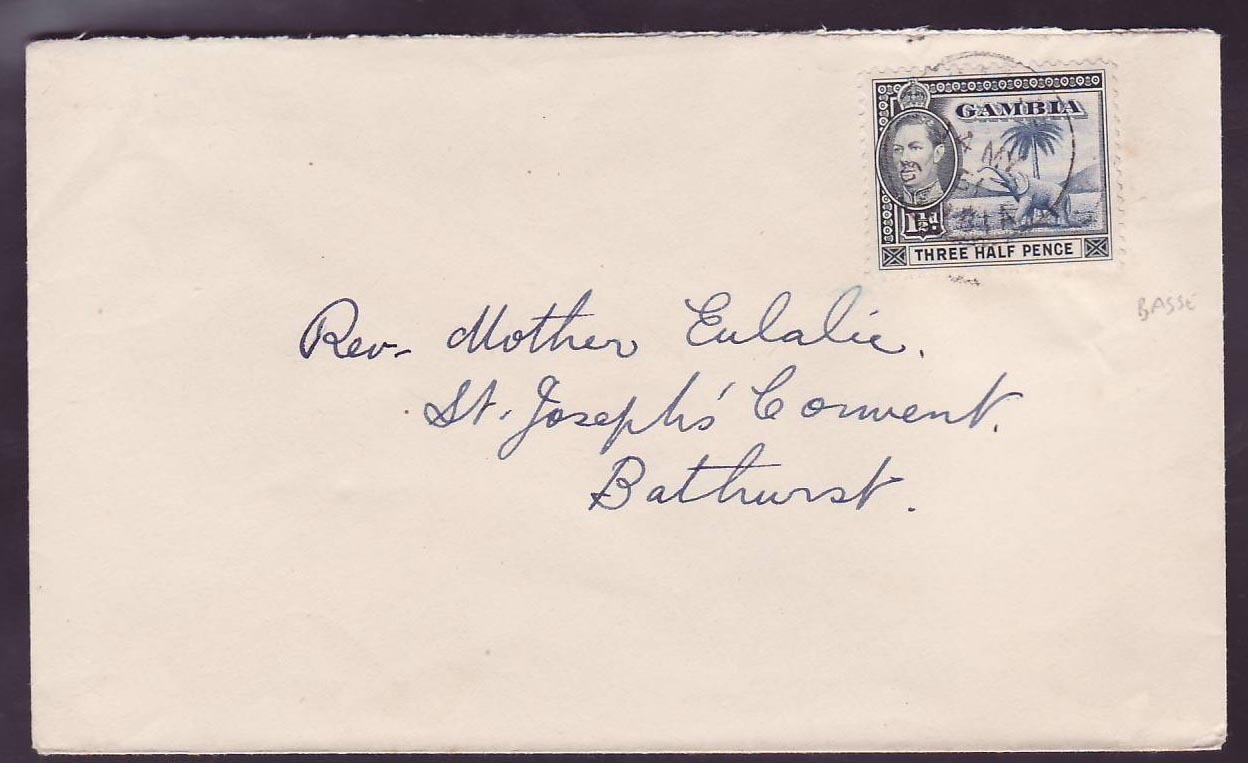 GAMBIA
1½d.
THREE HALF PENCE
BASSE
Rev. Mother Eulalie.
St. Joseph's Convent.
Bathurst.